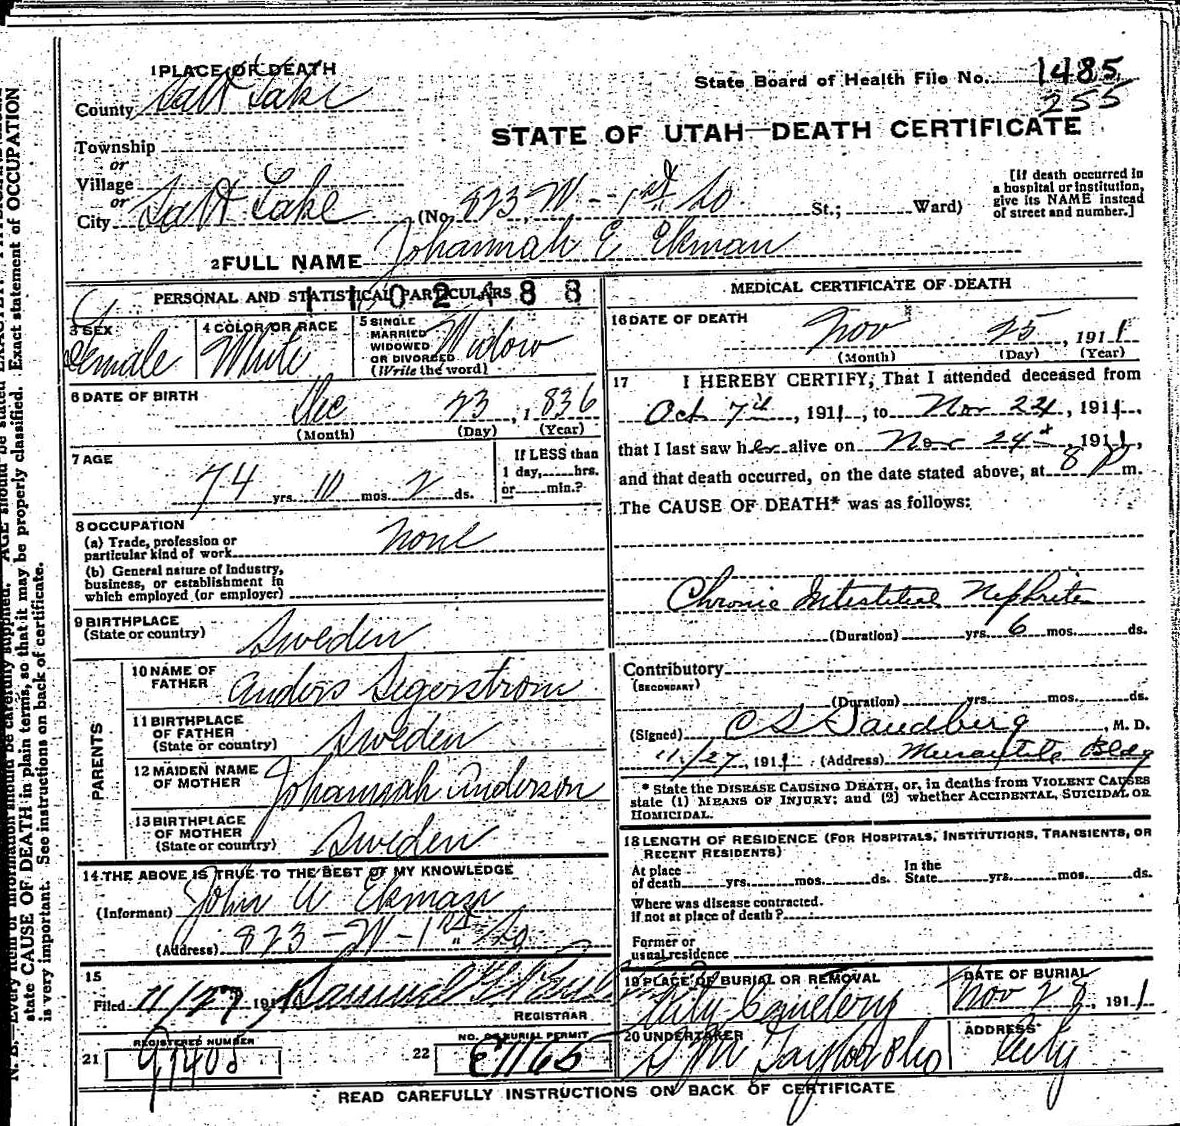 1 PLACE OF DEATH
County Salt Lake
State Board of Health File No. 1485
255
STATE OF UTAH—DEATH CERTIFICATE
Township
or
Village
or
City Salt Lake (No. 823 W - 1st So St.; Ward)
[If death occurred in
a hospital or institution,
give its NAME instead
of street and number.]
2 FULL NAME Johannah E Ekman
PERSONAL AND STATISTICAL PARTICULARS
3 SEX Female
4 COLOR OR RACE White
5 SINGLE
MARRIED
WIDOWED
OR DIVORCED
(Write the word) Widow
6 DATE OF BIRTH Dec 23, 1836
(Month) (Day) (Year)
7 AGE
74 yrs. 10 mos. 2 ds.
If LESS than
1 day,......hrs.
or......min.?
8 OCCUPATION
(a) Trade, profession or
particular kind of work none
(b) General nature of Industry,
business, or establishment in
which employed (or employer)
9 BIRTHPLACE
(State or country) Sweden
PARENTS
10 NAME OF
FATHER Anders Segerstrom
11 BIRTHPLACE
OF FATHER
(State or country) Sweden
12 MAIDEN NAME
OF MOTHER Johannah Anderson
13 BIRTHPLACE
OF MOTHER
(State or country) Sweden
14 THE ABOVE IS TRUE TO THE BEST OF MY KNOWLEDGE
(Informant) John W Ekman
(Address) 823 - W - 1st So
15
Filed 11/27 1911
REGISTRAR
REGISTERED NUMBER
21
NO. OF BURIAL PERMIT
22 E7165
MEDICAL CERTIFICATE OF DEATH
16 DATE OF DEATH
Nov 25, 1911
(Month) (Day) (Year)
17 I HEREBY CERTIFY, That I attended deceased from
Oct 7th, 1911, to Nov 24, 1911,
that I last saw her alive on Nov 24th, 1911,
and that death occurred, on the date stated above, at 8 P m.
The CAUSE OF DEATH* was as follows:
Chronic Interstitial Nephritis
(Duration) yrs. 6 mos. ds.
Contributory
(SECONDARY)
(Duration) yrs. mos. ds.
(Signed) C S Sandberg, M. D.
11/27, 1911 (Address) Mercantile Bldg
* State the DISEASE CAUSING DEATH, or, in deaths from VIOLENT CAUSES
state (1) MEANS OF INJURY; and (2) whether ACCIDENTAL, SUICIDAL OR
HOMICIDAL.
18 LENGTH OF RESIDENCE (FOR HOSPITALS, INSTITUTIONS, TRANSIENTS, OR
RECENT RESIDENTS)
At place
of death yrs. mos. ds.
In the
State yrs. mos. ds.
Where was disease contracted.
if not at place of death?
Former or
usual residence
19 PLACE OF BURIAL OR REMOVAL
City Cemetery
DATE OF BURIAL
Nov 28, 1911
20 UNDERTAKER
ADDRESS
City
READ CAREFULLY INSTRUCTIONS ON BACK OF CERTIFICATE
state CAUSE OF DEATH in plain terms, so that it may be properly classified. Exact statement of OCCUPATION
is very important. See instructions on back of certificate.